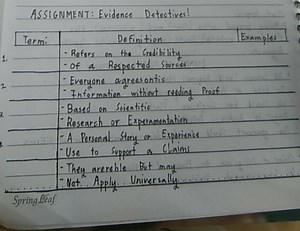 ASSIGNMENT: Evidence Detectives!
Term: Definition Examples
1. - Refers on the Credibility
- Of a Respected Sources
2. - Everyone agreesontic
- Information without needing Proof
- Based on Scientific
- Research or Experamentation
- A Personal Story or Experience
- Use to Support a Claims
- They arereble But may
- Not Apply Universally
SpringLeaf